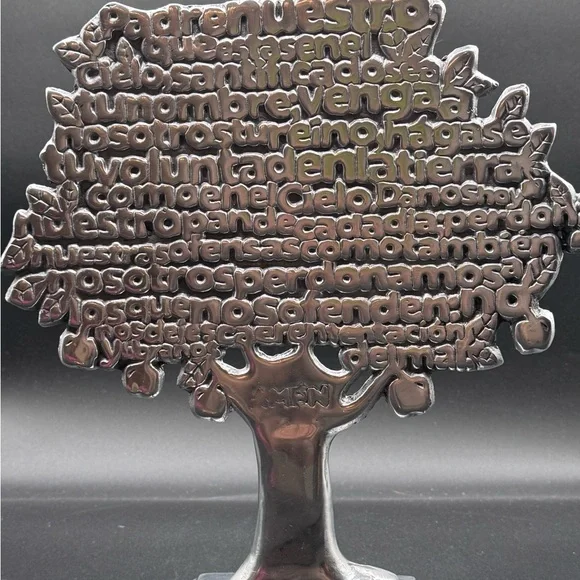 Padrenuestro
queestasenel
Cielo,santificadosea
tunombre.vengaa
nosotrostureino,hágase
tuvoluntadenlatierra
comoenelCielo.Danoshoy
nuestropandecadadia,perdona
nuestrasofensascomotambién
nosotrosperdonamosa
losquenosofenden.no
nosdejescaerententación
ylibranos delmal
AMEN